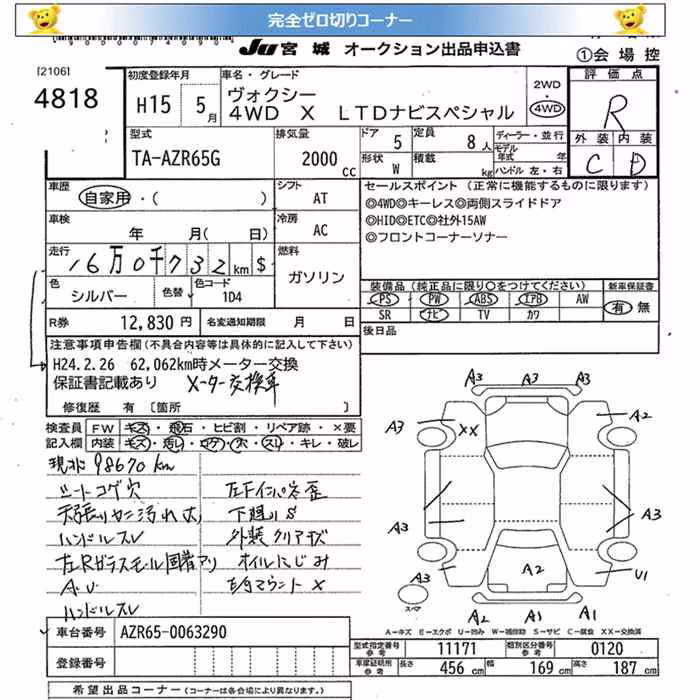 完全ゼロ切りコーナー
JU 宮城 オークション出品申込書
①会場控
[2106]
4818
初度登録年月
H15 5月
車名・グレード
ヴォクシー
4WD X LTDナビスペシャル
2WD
4WD
評価点
R
外装 内装
C D
型式
TA-AZR65G
排気量
2000 cc
ドア 5
定員 8人
形状 W
積載 kg
ディーラー・並行
モデル年式 年
ハンドル 左・右
車歴
自家用・( )
シフト
AT
車検
年 月( 日)
冷房
AC
走行
16万0千732km $
燃料
ガソリン
色
シルバー
色替
色コード
1D4
R券 12,830円
名変通知期限 月 日
セールスポイント(正常に機能するものに限ります)
◎4WD◎キーレス◎両側スライドドア
◎HID◎ETC◎社外15AW
◎フロントコーナーソナー
装備品(純正品に限り○をつけてください)
新車保証書
PS PW ABS エアB AW
SR ナビ TV カワ
有 無
後日品
注意事項申告欄(不具合内容等は具体的に記入して下さい)
H24.2.26 62,062km時メーター交換
保証書記載あり メーター交換車
修復歴 有 〔箇所 〕
検査員記入欄
FW キズ・飛石・ヒビ割・リペア跡・×要
内装 キズ・汚れ・コゲ・穴・スレ・キレ・破レ
現状 98670 km
シートコゲ穴
天張りヤニ汚れ大
ハンドルスレ
左Rガラスモール固着アリ
A.U
ハンドルスレ
左Fインパネ歪
下廻りS
外装クリアキズ
オイルにじみ
A3 A3 A3
A3 XX A2
A3 A3
A3 A2 U1
スペア
A2 A1 A1
A-キズ E-エクボ U-凹み W-補修跡 S-サビ C-腐食 XX-交換済
車台番号 AZR65-0063290
登録番号
型式指定番号 参考 11171
類別区分番号 参考 0120
車庫証明用 参考 長さ 456 cm 幅 169 cm 高さ 187 cm
希望出品コーナー(コーナーは各会場により異なります。)